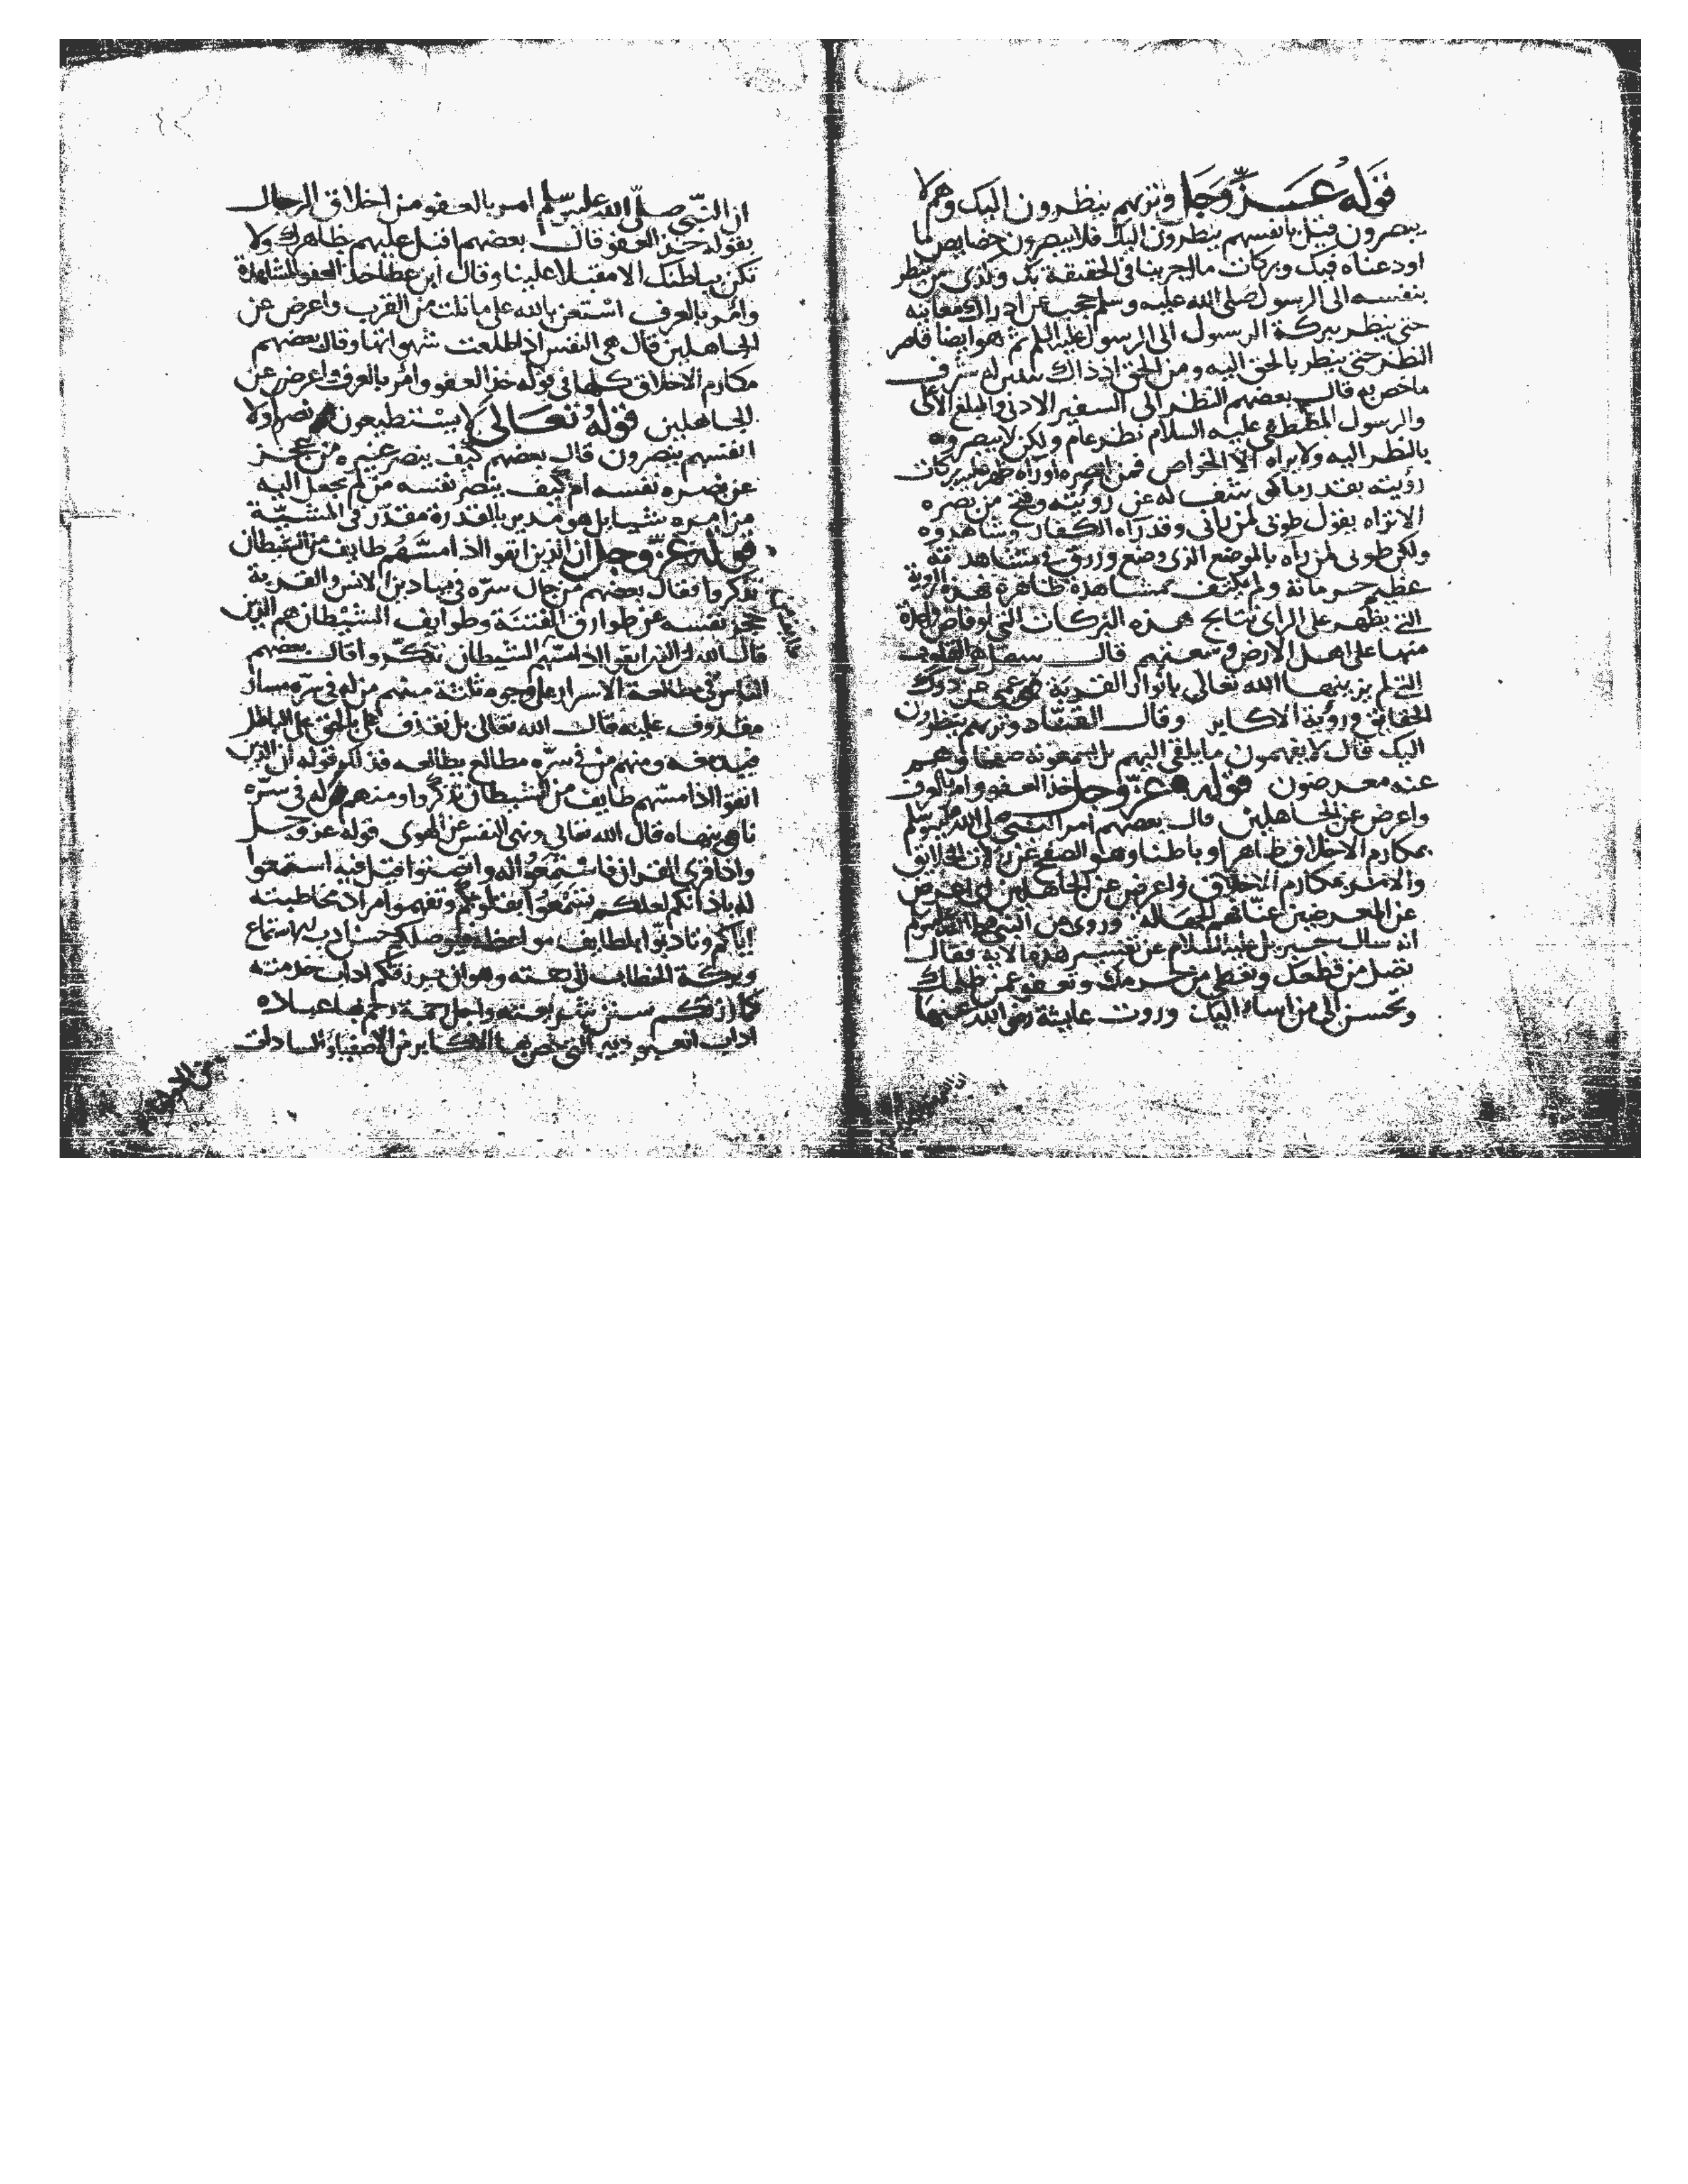 قوله عز وجل وتريهم ينظرون اليك وهم لا
يبصرون قيل بانفسهم ينظرون اليك فلا يبصرون خصايص ما
اودعناه فيك وبركات في الحقيقة بك والذي من ينظر
بنفسه الى الرسول صلى الله عليه وسلم حجب عن ادراك معاينه
حتى ينظر ببركة الرسول الى الرسول عليه السلم ثم هو ايضا قاصر
النظر حتى ينظر بالحق اليه ومن الحق اذ ذاك شرف
ماخص به قال بعضهم النظر الى السفير الادنى والمبلغ الاعلى
والرسول المصطفى عليه السلام نظر عام ولكن لا يبصروه
بالنظر اليه ولا يراه الا الخواص فمن ابصره او رآه ظهر عليه بركات
رؤيته بقدر ما كشف له عن رؤيته وفتح من بصره
الا تراه يقول طوبى لمن راني وقد رآه الكفار وشاهدوه
ولكن طوبى لمن رآه بالموضع الذي وضع ورزق في مشاهدته
عظيم حرماته ولم يكتف بمشاهدة ظاهره فهذه الرؤية
التي يظهر على الرأي نتايج هذه البركات التي لو فاض
منها على اهل الارض وسعتهم قال سهل هي القلوب
التي لم يزينها الله تعالى بانوار القربة فهي عمي عن درك
الحقايق ورؤية الاكابر وقال القناد وتريهم ينظرون
اليك قال لا يفهمون ما يلقى اليهم بل يسمعونه صفقا وهم
عنه معرضون قوله عز وجل خذ العفو وامر بالعرف
واعرض عن الجاهلين قال بعضهم امر النبي صلى الله عليه وسلم
بمكارم الاخلاق ظاهرا وباطنا وهو الصفح عن زلات الخلايق
والامر بمكارم الاخلاق واعرض عن الجاهلين اي اعرض
عن المعرضين عنا فهم الجهاله وروي عن النبي صلى الله عليه وسلم
انه سال جبريل عليه السلام عن تفسير هذه الاية فقال
تصل من قطعك وتعطي من حرمك وتعفو عمن ظلمك
وتحسن الى من اساء اليك وروت عايشة رضي الله عنها
ان النبي صلى الله عليه وسلم امر بالعفو من اخلاق الرجال
بقوله خذ العفو قال بعضهم اقبل عليهم بظاهرك ولا
تكن بباطنك الا مقبلا علينا وقال ابن عطا خذ العفو للشاهدة
وامر بالعرف استعن بالله على ما نلت من القرب واعرض عن
الجاهلين قال هي النفس اذا طلعت شهواتها وقال بعضهم
مكارم الاخلاق كلها في قوله خذ العفو وامر بالعرف واعرض عن
الجاهلين قوله تعالى لا يستطيعون نصرا ولا
انفسهم ينصرون قال بعضهم كيف ينصر غيره من عجز
عن نصره نفسه ام كيف ينصر نفسه من لم يجعل اليه
من امره شيا بل هو مدبر بالقدرة مقدر في المشية
قوله عز وجل ان الذين اتقوا اذا مسهم طايف من الشيطان
تذكروا فقال بعضهم من جال سره في ميادين الانس والقربة
حجر نفسه عن طوارق الفتنة وطوايف الشيطان هم الذين
قال الله ان الذين اتقوا اذا مسهم الشيطان تذكروا قال بعضهم
الناس في مطالعة الاسرار على وجوه ثلثة منهم من له في سره مسار
مقذوف عليه قال الله تعالى بل نقذف بالحق على الباطل
فيدمغه ومنهم من في سره مطالع يطالعه فذلك قوله ان الذين
اتقوا اذا مسهم طايف من الشيطان تذكروا ومنهم من له في سره
ناه ينهاه قال الله تعالى ونهى النفس عن الهوى قوله عز وجل
واذا قرئ القران فاستمعوا له وانصتوا قيل فيه استمعوا
له باذانكم لعلكم تسمعوا بقلوبكم وتفهموا مراد مخاطبته
اياكم وتادبوا بلطايف مواعظه حسن ادب استماع
وبركة الخطاب الى رحمته وهو ان يرزقكم اداب خدمته
كما رزقكم سنن شريعته واجل رحمة رحم بها عباده
اداب العبودية التي خص بها الاكابر من الاصفياء والسادات